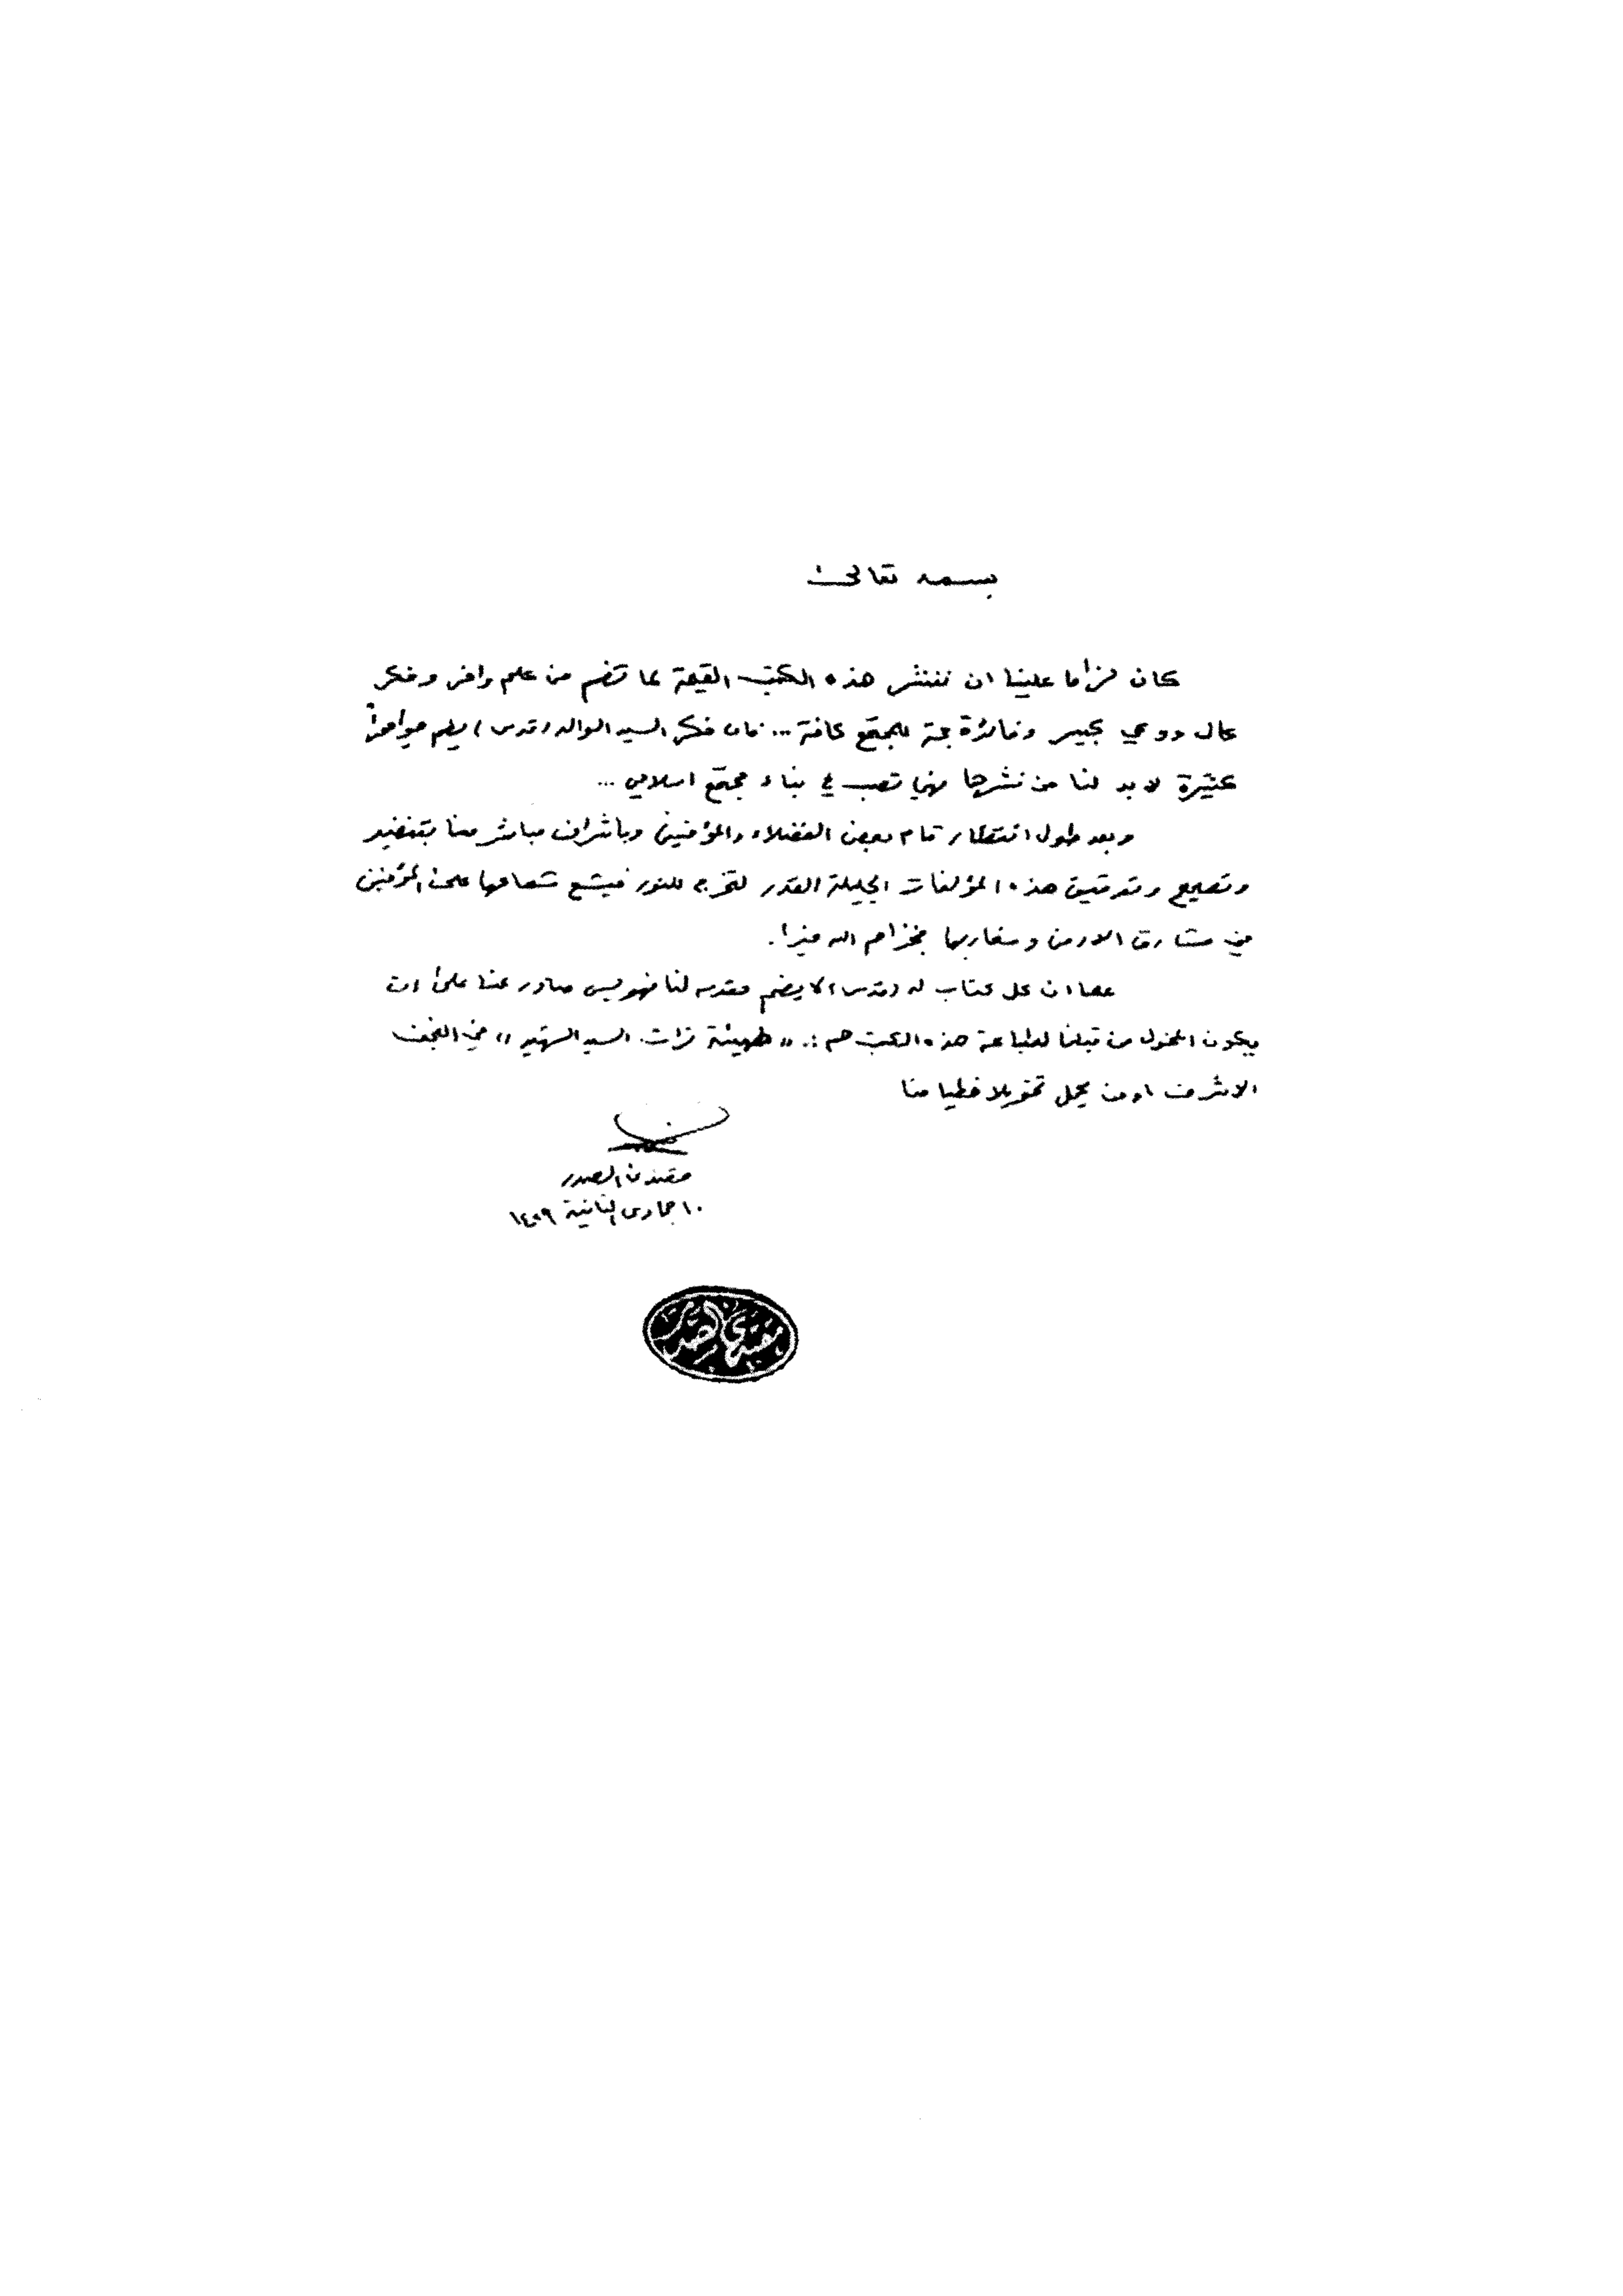 بسمه تعالى
كان لزاما علينا ان ننشر هذه الكتب القيمة لما تضم من علم وافر وفكر
عال ووعي كبير وفائدة جمة للمجتمع كافة ... فان فكر السيد الوالد (قدس) يضم مواهراً
كثيرة لابد لنا من نشرها فهي تصب في بناء مجتمع اسلامي ...
وبعد طول انتظار قام بعض الفضلاء والمؤمنين وباشراف مباشر منا بتنضيد
وتصحيح وتدقيق هذه المؤلفات الجليلة القدر لتخرج للنور فيشع شعاعها على المؤمنين
في مشارق الارض ومغاربها فجزاهم الله خيرا.
كما ان كل كتاب له (قدس) لا يضم مقدمه لنا فهو ليس صادر عنا على ان
يكون المخول من قبلنا لطباعة هذه الكتب هم : «هيئة تراث السيد الشهيد» في النجف
الاشرف او من يحمل تخويلا خطيا منا
مقتدى الصدر
١٠ جمادى الثانية ١٤٢٩
مقتدى الصدر